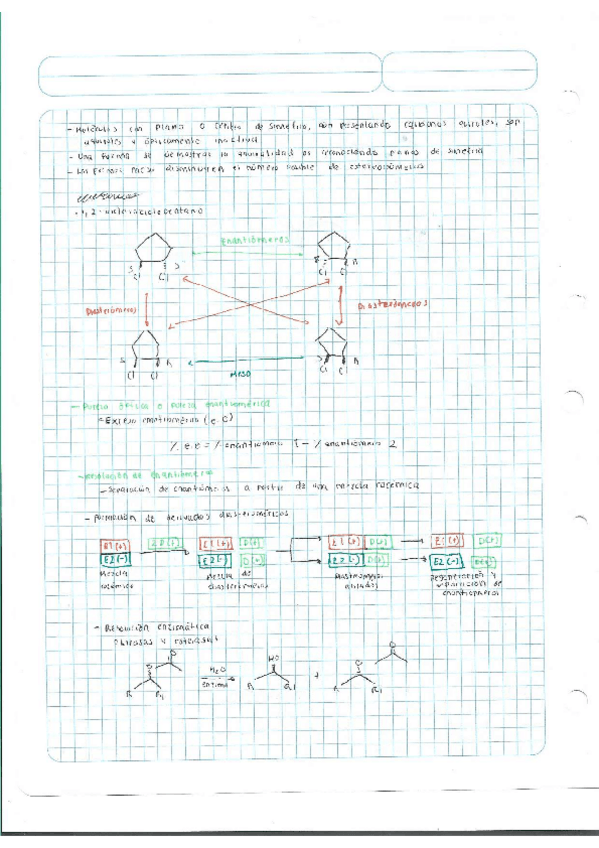 - Moléculas con plano o centro de simetría, aún presentando carbonos quirales, son
aquirales y ópticamente inactivas
- Una forma de demostrar la aquiralidad es reconociendo planos de simetría
- Las formas meso disminuyen el número posible de estereoisómeros
1,2-diclorociclopentano
Enantiómeros
S S
Cl Cl
R R
Cl Cl
Diasterómeros
Diasterómeros
S R
Cl Cl
MESO
S R
Cl Cl
- Pureza óptica o pureza enantiomérica
= Exceso enantiomérico (e.e)
% e.e = % enantiómero 1 - % enantiómero 2
- Resolución de enantiómeros
- Separación de enantiómeros a partir de una mezcla racémica
- Formación de derivados diasteroméricos
E1(+) 2D(+) E1(+) D(+) E1(+) D(+) E1(+) D(+)
E2(-) E2(-) D(+) E2(-) D(+) E2(-) D(+)
Mezcla racémica
Mezcla de
Regeneración y separación de enantiómeros
- Resolución enzimática
O O HO O O
H2O
enzima
+
R R1 R R1 R R1